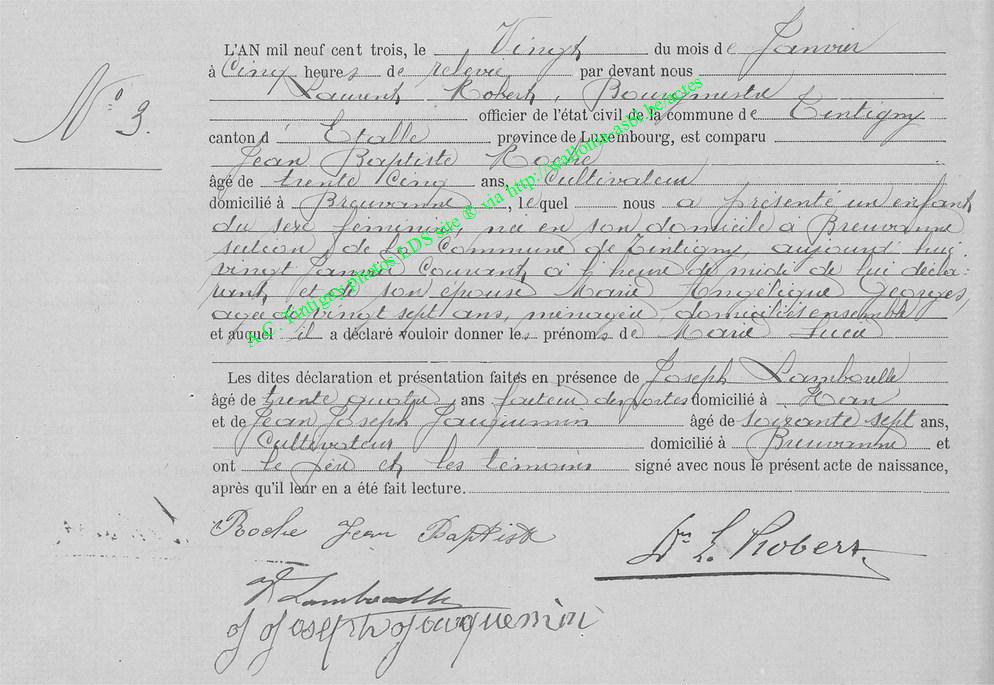 N° 3.
L'AN mil neuf cent trois, le Vingt du mois de Janvier
à Cinq heures de relevée par devant nous
Laurent Robert, Bourgmestre
officier de l'état civil de la commune de Tintigny
canton d' Etalle province de Luxembourg, est comparu
Jean Baptiste Roche
âgé de trente Cinq ans, Cultivateur
domicilié à Breuvanne, lequel nous a présenté un enfant
du sexe féminin, née en son domicile à Breuvanne
section de la Commune de Tintigny, aujourd'hui
vingt Janvier Courant, à heure de midi de lui décla-
rant, et de son épouse Marie Angélique Georges,
agée de vingt sept ans, ménagère, domiciliés ensemble
et auquel il a déclaré vouloir donner les prénoms de Marie Lucie
Les dites déclaration et présentation faites en présence de Joseph Lamborelle
âgé de trente quatre ans facteur des postes domicilié à Han
et de Jean Joseph Jacquemin âgé de soixante sept ans,
Cultivateur domicilié à Breuvanne et
ont le père et les témoins signé avec nous le présent acte de naissance,
après qu'il leur en a été fait lecture.
Roche Jean Baptiste
Dr L. Robert
Lamborelle
J Joseph Jacquemin
A.C. Tintigny photos LDS site ® via http://wallonieasbl.be/actes